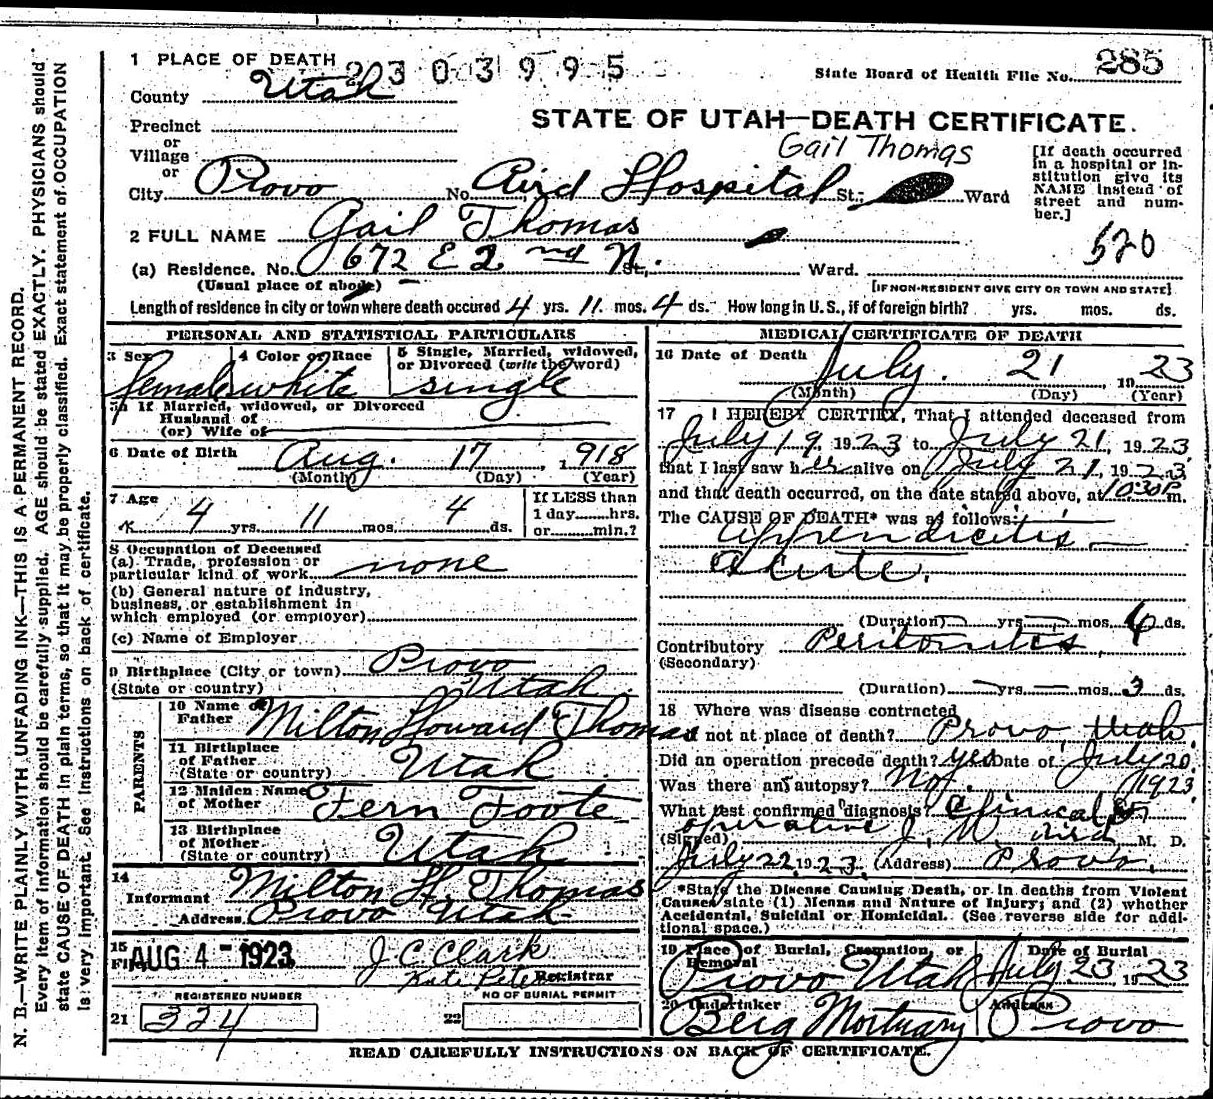 1 PLACE OF DEATH
2303995
285
State Board of Health File No.
County Utah
STATE OF UTAH—DEATH CERTIFICATE.
Precinct
or
Village
or
Gail Thomas
[If death occurred
in a hospital or in-
stitution give its
NAME instead of
street and num-
ber.]
City Provo No. Aird Hospital St.; Ward
2 FULL NAME Gail Thomas
520
(a) Residence. No. 672 E 2nd N. St., Ward.
(Usual place of abode)
[IF NON-RESIDENT GIVE CITY OR TOWN AND STATE]
Length of residence in city or town where death occured 4 yrs. 11 mos. 4 ds. How long in U.S., if of foreign birth? yrs. mos. ds.
PERSONAL AND STATISTICAL PARTICULARS
3 Sex female
4 Color or Race white
5 Single, Married, widowed,
or Divorced (write the word)
single
5a If Married, widowed, or Divorced
Husband of
(or) Wife of
6 Date of Birth Aug. 17, 1918
(Month) (Day) (Year)
7 Age 4 yrs. 11 mos. 4 ds.
If LESS than
1 day......hrs.
or......min.?
8 Occupation of Deceased
(a) Trade, profession or
particular kind of work none
(b) General nature of industry,
business, or establishment in
which employed (or employer)
(c) Name of Employer
9 Birthplace (City or town) Provo
(State or country) Utah
PARENTS
10 Name of
Father Milton Howard Thomas
11 Birthplace
of Father Utah
(State or country)
12 Maiden Name
of Mother Fern Foote
13 Birthplace
of Mother
(State or country) Utah
14
Informant Milton H Thomas
Address Provo Utah
15
Filed AUG 4 - 1923 J C Clark
Kate Peters Registrar
REGISTERED NUMBER
NO OF BURIAL PERMIT
21 334
22
MEDICAL CERTIFICATE OF DEATH
16 Date of Death July 21, 1923
(Month) (Day) (Year)
17 I HEREBY CERTIFY, That I attended deceased from
July 19, 1923 to July 21, 1923
that I last saw her alive on July 21, 1923
and that death occurred, on the date stated above, at 10:30 P m.
The CAUSE OF DEATH* was as follows:
appendicitis —
acute.
(Duration) yrs. mos. 4 ds.
Contributory Peritonites
(Secondary)
(Duration) yrs. mos. 3 ds.
18 Where was disease contracted
if not at place of death? Provo, Utah.
Did an operation precede death? yes Date of July 20
1923
Was there an autopsy? No
What test confirmed diagnosis? Clinical &
operative
(Signed) J. W. Aird M. D.
July 22, 1923. (Address) Provo
*State the Disease Causing Death, or in deaths from Violent
Causes state (1) Menns and Nature of Injury; and (2) whether
Accidental, Suicidal or Homicidal. (See reverse side for addi-
tional space.)
19 Place of Burial, Cremation, or
Removal
Provo Utah
Date of Burial
July 23, 1923
20 Undertaker
Berg Mortuary
Address
Provo
READ CAREFULLY INSTRUCTIONS ON BACK OF CERTIFICATE.
N. B.—WRITE PLAINLY WITH UNFADING INK—THIS IS A PERMANENT RECORD.
Every item of information should be carefully supplied. AGE should be stated EXACTLY. PHYSICIANS should
state CAUSE OF DEATH in plain terms, so that it may be properly classified. Exact statement of OCCUPATION
is very important. See instructions on back of certificate.